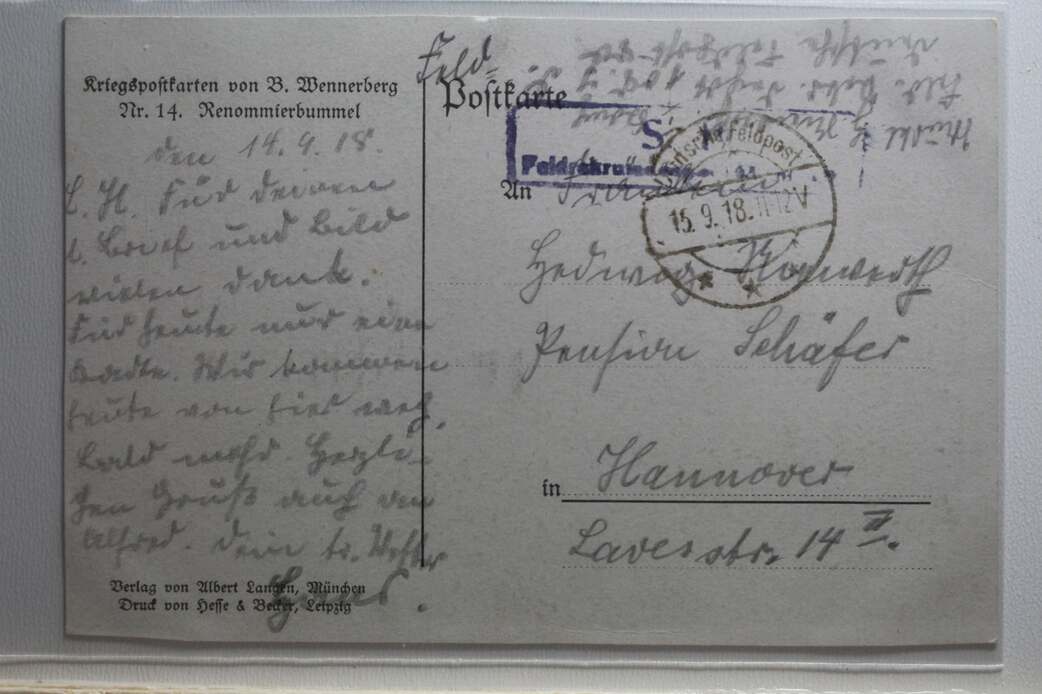 Kriegspostkarten von B. Wennerberg
Nr. 14. Renommierbummel
den 14.9.18.
L. H. Für deinen
l. Brief und Bild
vielen Dank.
Für heute nur eine
Karte. Wir kommen
heute von hier weg.
Bald mehr. Herzli-
chen Gruß auch an
Alfred. Dein tr.
Hans.
Verlag von Albert Langen, München
Druck von Hesse & Becker, Leipzig
Feld-
Postkarte
S.
Deutsche Feldpost
15.9.18. 11-12V
An Fräulein
Hedwig
Pension Schäfer
in Hannover
Lavesstr. 14 II.
Deutsche Feldpost